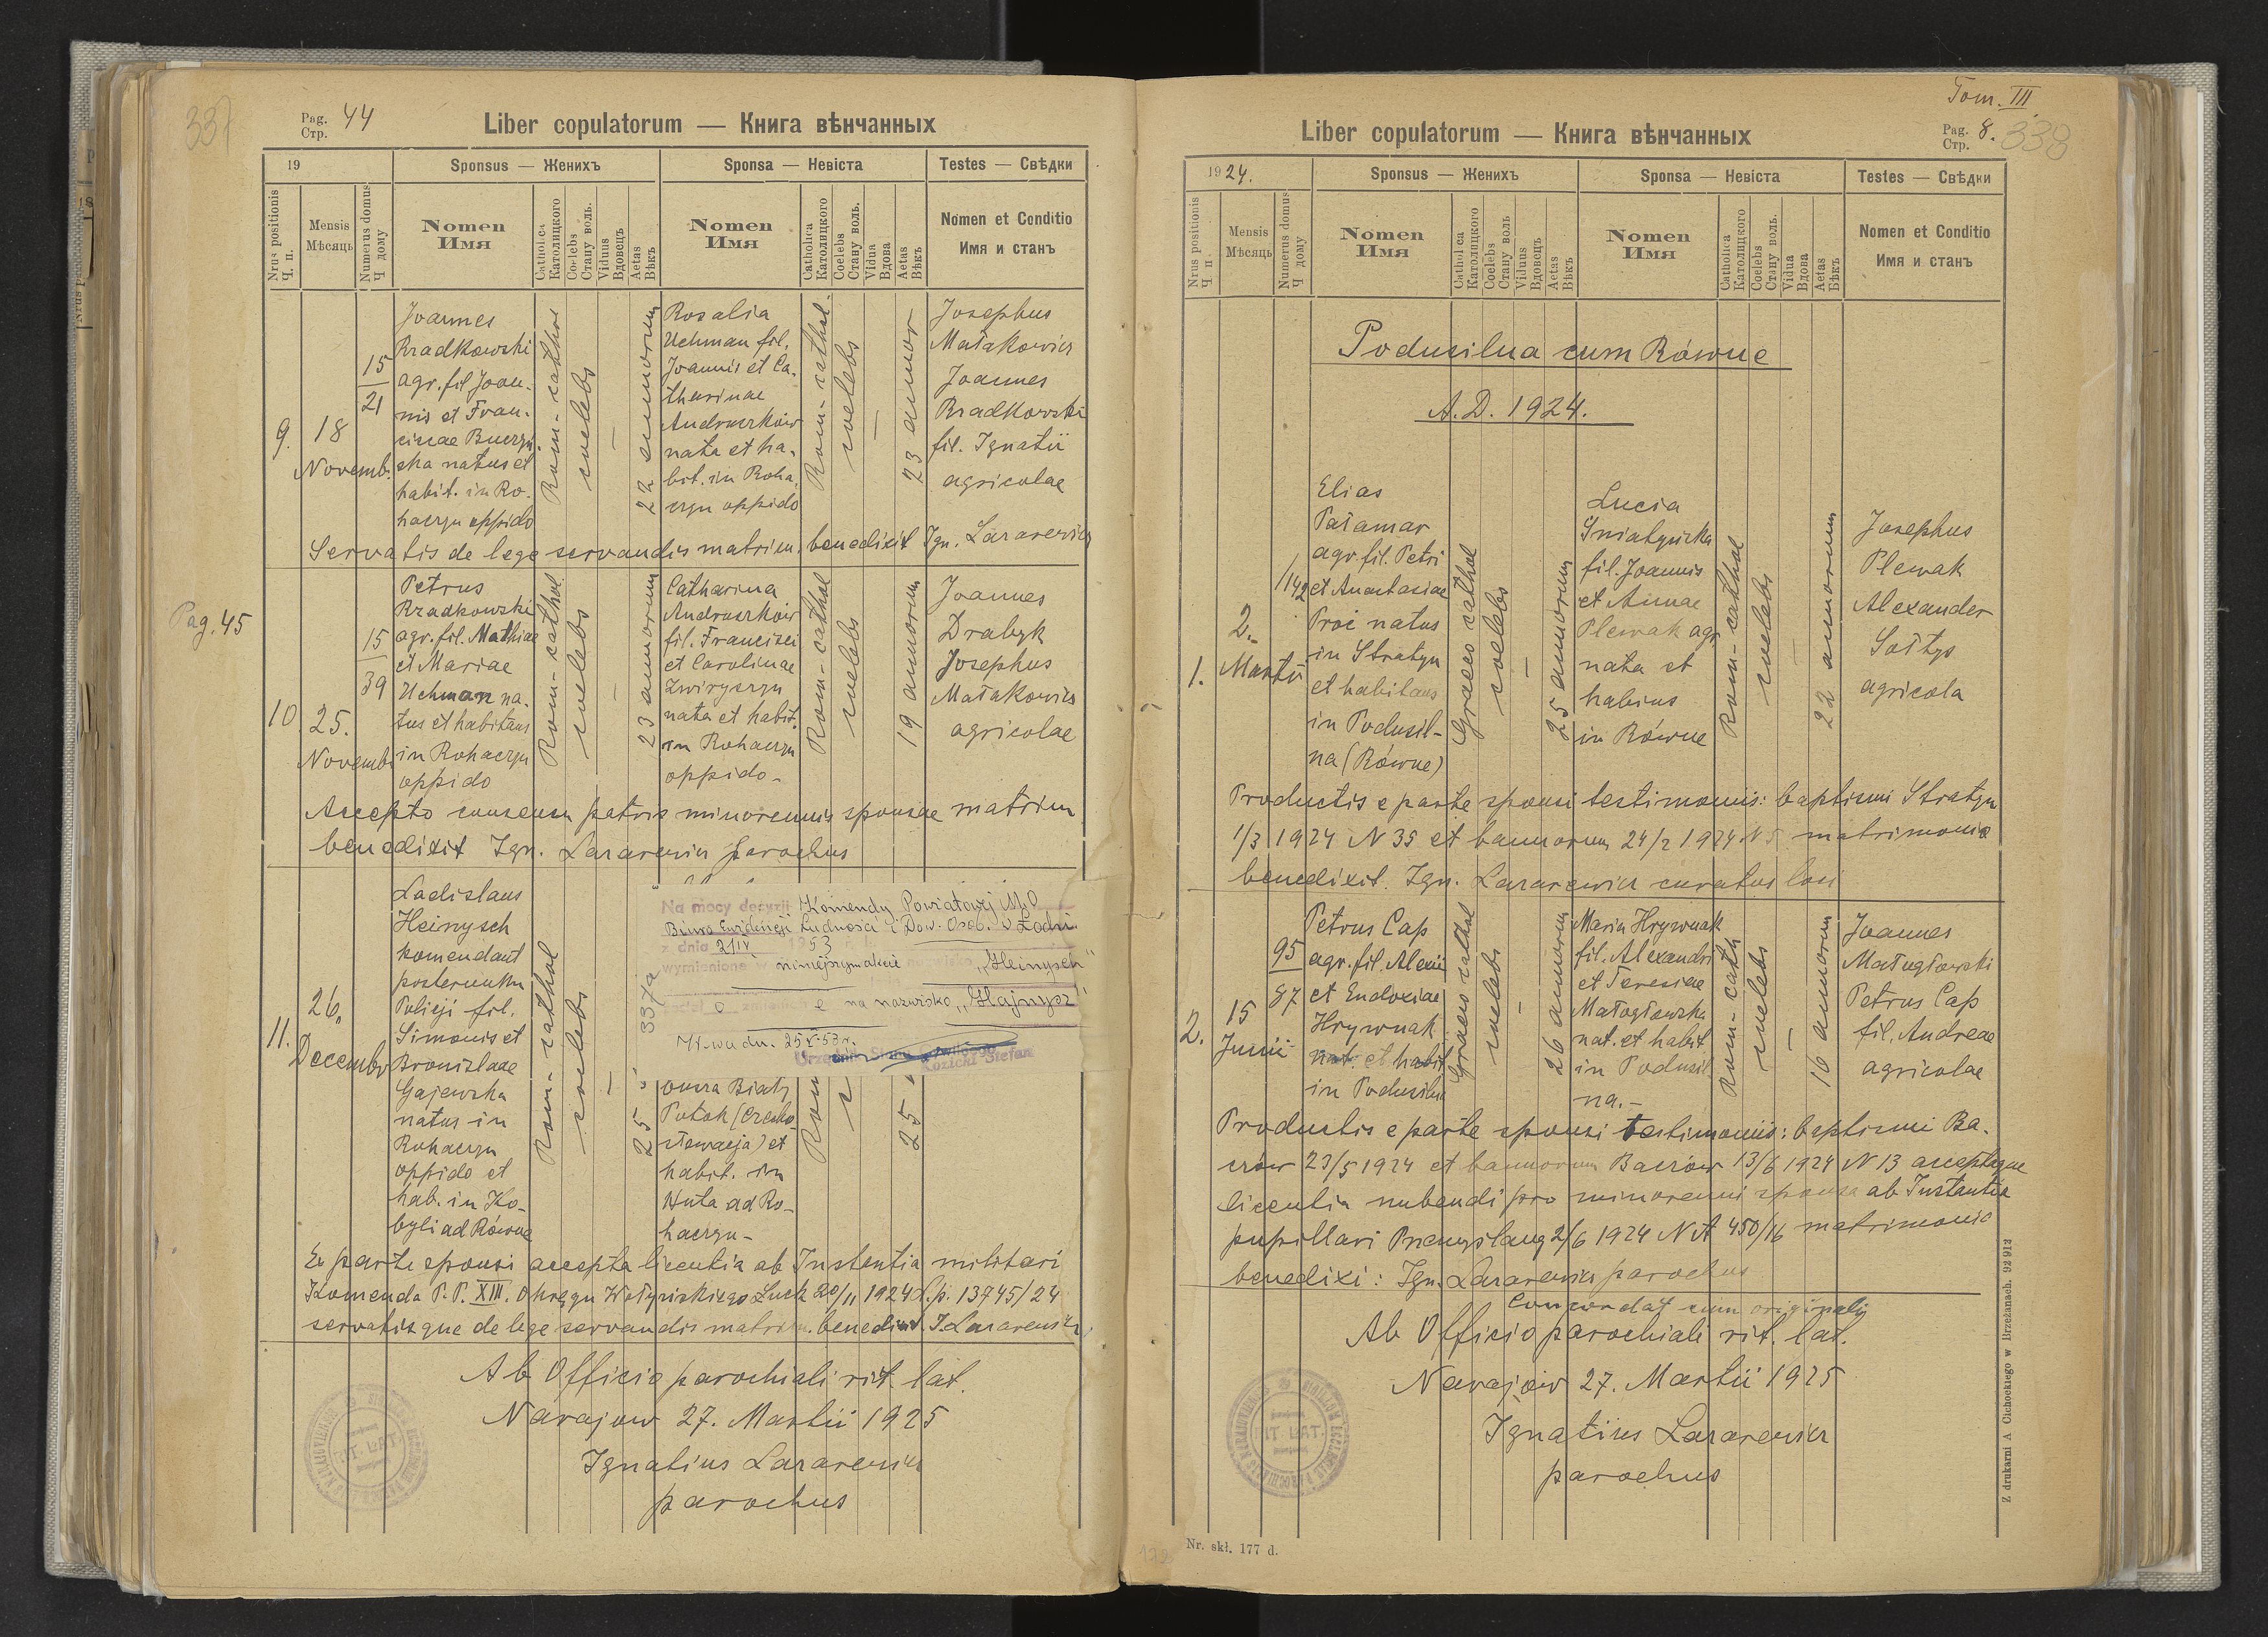 337
Pag. 44
Стр.
Liber copulatorum — Книга вѣнчанных
19
Sponsus — Женихъ
Sponsa — Невіста
Testes — Свѣдки
Nrus positionis
Ч. п.
Mensis
Мѣсяць
Numerus domus
Ч дому
Nomen
Имя
Catholica
Католицкого
Coelebs
Стану воль.
Viduus
Вдовець
Aetas
Вѣкъ
Nomen
Имя
Catholica
Католицкого
Coelebs
Стану воль.
Vidua
Вдова
Aetas
Вѣкъ
Nomen et Conditio
Имя и станъ
9.
18
Novemb.
15
21
Joannes
Rradkowski
agr. fil Joan-
nis et Fran-
ciscae
natus et
habit. in Ro-
haczyn oppido
Rom-cathol
coelebs
—
22 annorum
Rozalia
Uchman fil.
Joannis et Ca-
tharinae
Andruszków
nata et ha-
bit. in Roha-
czyn oppido
Rom-cathol.
coelebs
—
23 annor
Josephus
Małakowicz
Joannes
Rradkowski
fil. Ignatii
agricolae
Servatis de lege servandis matrim. benedixit Ign. Lazarewicz
Pag. 45
10.
25.
Novemb
15
39
Petrus
Rzadkowski
agr. fil. Mathiae
et Mariae
Uchman na-
tus et habitans
in Rohaczyn
oppido
Rom-cathol
coelebs
—
23 annorum
Catharina
Andruszków
fil. Francisci
et Carolinae
Zwirysryn
nata et habit.
in Rohaczyn
oppido-
Rom-cathol
coelebs
—
19 annorum
Joannes
Drabyk
Josephus
Małakowicz
agricolae
Accepto consensu patris minorennis sponsae matrim
benedixit Ign. Lazarewicz parochus
11.
26.
Decembr
Ladislaus
Heinysch
komendant
posterunku
Policji fil.
Simonis et
Bronislaae
Gajewska
natus in
Rohaczyn
oppido et
hab. in Ko-
byli ad Równe
Rom-cathol
coelebs
—
25
Na mocy decyzji Komendy Powiatowej M.O
Biura Ewidencji Ludności i Dow. Osob. w Łodzi
z dnia 21/IV 1953
wymienione w niniejszym akcie nazwisko „Heinysch"
na nazwisko „Hajnysz"
W-wa dn. 25.V.53 r.
Urzędnik Stanu Cywilnego
Kozicki Stefan
337a
Biały
Potok (Czecho-
słowacja) et
habit. in
Huta ad Ro-
haczyn-
Rom
25
Ex parte sponsi accepta licentia ab Instantia militari
Komenda P.P. XIII. Okręgu Wołyńskiego Łuck 20/11 1924 L.p. 13745/24
servatisque de lege servandis matrim. benedixit I. Lazarewicz
Ab Officio parochiali rit. lat.
Narajow 27. Martii 1925
Ignatius Lazarewicz
parochus
RIT. LAT.
Tom. III
Pag. 8.
Стр.
338
Liber copulatorum — Книга вѣнчанных
1924.
Sponsus — Женихъ
Sponsa — Невіста
Testes — Свѣдки
Nrus positionis
Ч п
Mensis
Мѣсяць
Numerus domus
Ч дому
Nomen
Имя
Catholica
Католицкого
Coelebs
Стану воль
Viduus
Вдовець
Aetas
Вѣкъ
Nomen
Имя
Catholica
Католицкого
Coelebs
Стану воль.
Vidua
Вдова
Aetas
Вѣкъ
Nomen et Conditio
Имя и станъ
Podusilna cum Równe
A.D. 1924.
1.
2.
Martii
142
Elias
Pałamar
agr. fil. Petri
et Anastasiae
Proć natus
in Stratyn
et habitans
in Podusil-
na (Równe)
Graeco cathol
coelebs
—
25 annorum
Lucia
Sniatyńska
fil. Joannis
et Annae
Plewak agr
nata et
habius
in Równe
Rom-cathol
coelebs
—
22 annorum
Josephus
Plewak
Alexander
Sołtys
agricola
Productis e parte sponsi testimoniis: baptismi Stratyn
1/3 1924 N 35 et bannorum 24/2 1924 N 5 matrimonio
benedixit. Ign. Lazarewicz curatus loci
2.
15
Junii
95
87
Petrus Cap
agr. fil. Alexii
et Eudoxiae
Hrywnak
nat. et habit
in Podusilna
Graeco cathol
coelebs
—
26 annorum
Maria Hrywnak
fil. Alexandri
et Teresiae
Małogłowska
nat. et habit
in Podusil
na.-
Rom-cath
coelebs
—
16 annorum
Joannes
Małogłowski
Petrus Cap
fil. Andreae
agricolae
Productis e parte sponsi testimoniis: baptismi Ba-
czów 23/5 1924 et bannorum Baczów 13/6 1924 N 13 acceptaque
licentia nubendi pro minorenni sponsa ab Instantia
pupillari Przemyślany 2/6 1924 N A 450/16 matrimonio
benedixi: Ign. Lazarewicz parochus
Concordat cum originali
Ab Officio parochiali rit. lat.
Narajów 27. Martii 1925
Ignatius Lazarewicz
parochus
RIT LAT.
Z drukarni A Cichockiego w Brzeżanach. 92 912
Nr. skł. 177 d.